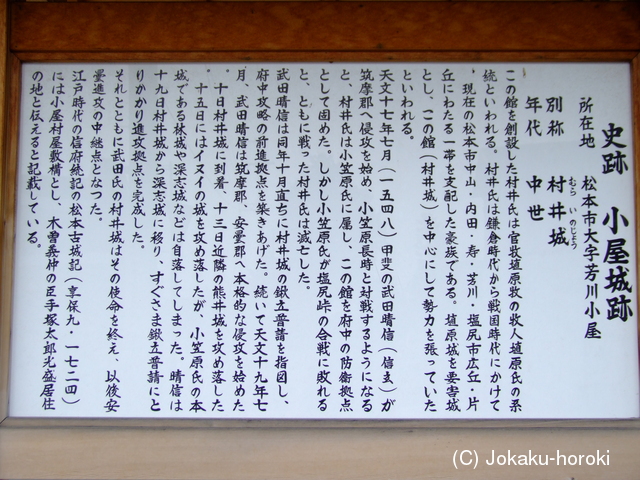 史跡 小屋城跡
所在地 松本市大字芳川小屋
別称 村井城
むらいのじょう
年代 中世
この館を創設した村井氏は官牧埴原牧の牧人埴原氏の系
統といわれる。村井氏は鎌倉時代から戦国時代にかけて
、現在の松本市中山・内田・寿・芳川・塩尻市広丘・片
丘にわたる一帯を支配した豪族である。埴原城を要害城
とし、この館(村井城)を中心にして勢力を張っていた
といわれる。
天文十七年七月(一五四八)甲斐の武田晴信(信玄)が
筑摩郡へ侵攻を始め、小笠原長時と対戦するようになる
と、村井氏は小笠原氏に属し、この館を府中の防衛拠点
として固めた。しかし小笠原氏が塩尻峠の合戦に敗れる
と、ともに戦った村井氏は滅亡した。
武田晴信は同年十月直ちに村井城の鍬立普請を指図し、
府中攻略の前進拠点を築きあげた。続いて天文十九年七
月、武田晴信は筑摩郡、安曇郡へ本格的な侵攻を始めた
。十日村井城に到着、十三日近隣の熊井城を攻め落した
。十五日にはイヌイの城を攻め落したが、小笠原氏の本
城である林城や深志城などは自落してしまった。晴信は
十九日村井城から深志城に移り、すぐさま鍬立普請にと
りかかり進攻拠点を完成した。
それとともに武田氏の村井城はその使命を終え、以後安
曇進攻の中継点となつた。
江戸時代の信府統記の松本古城記(享保九・一七二四)
には小屋村屋敷構とし、木曽義仲の臣手塚太郎光盛居住
の地と伝えると記載している。
(C) Jokaku-horoki